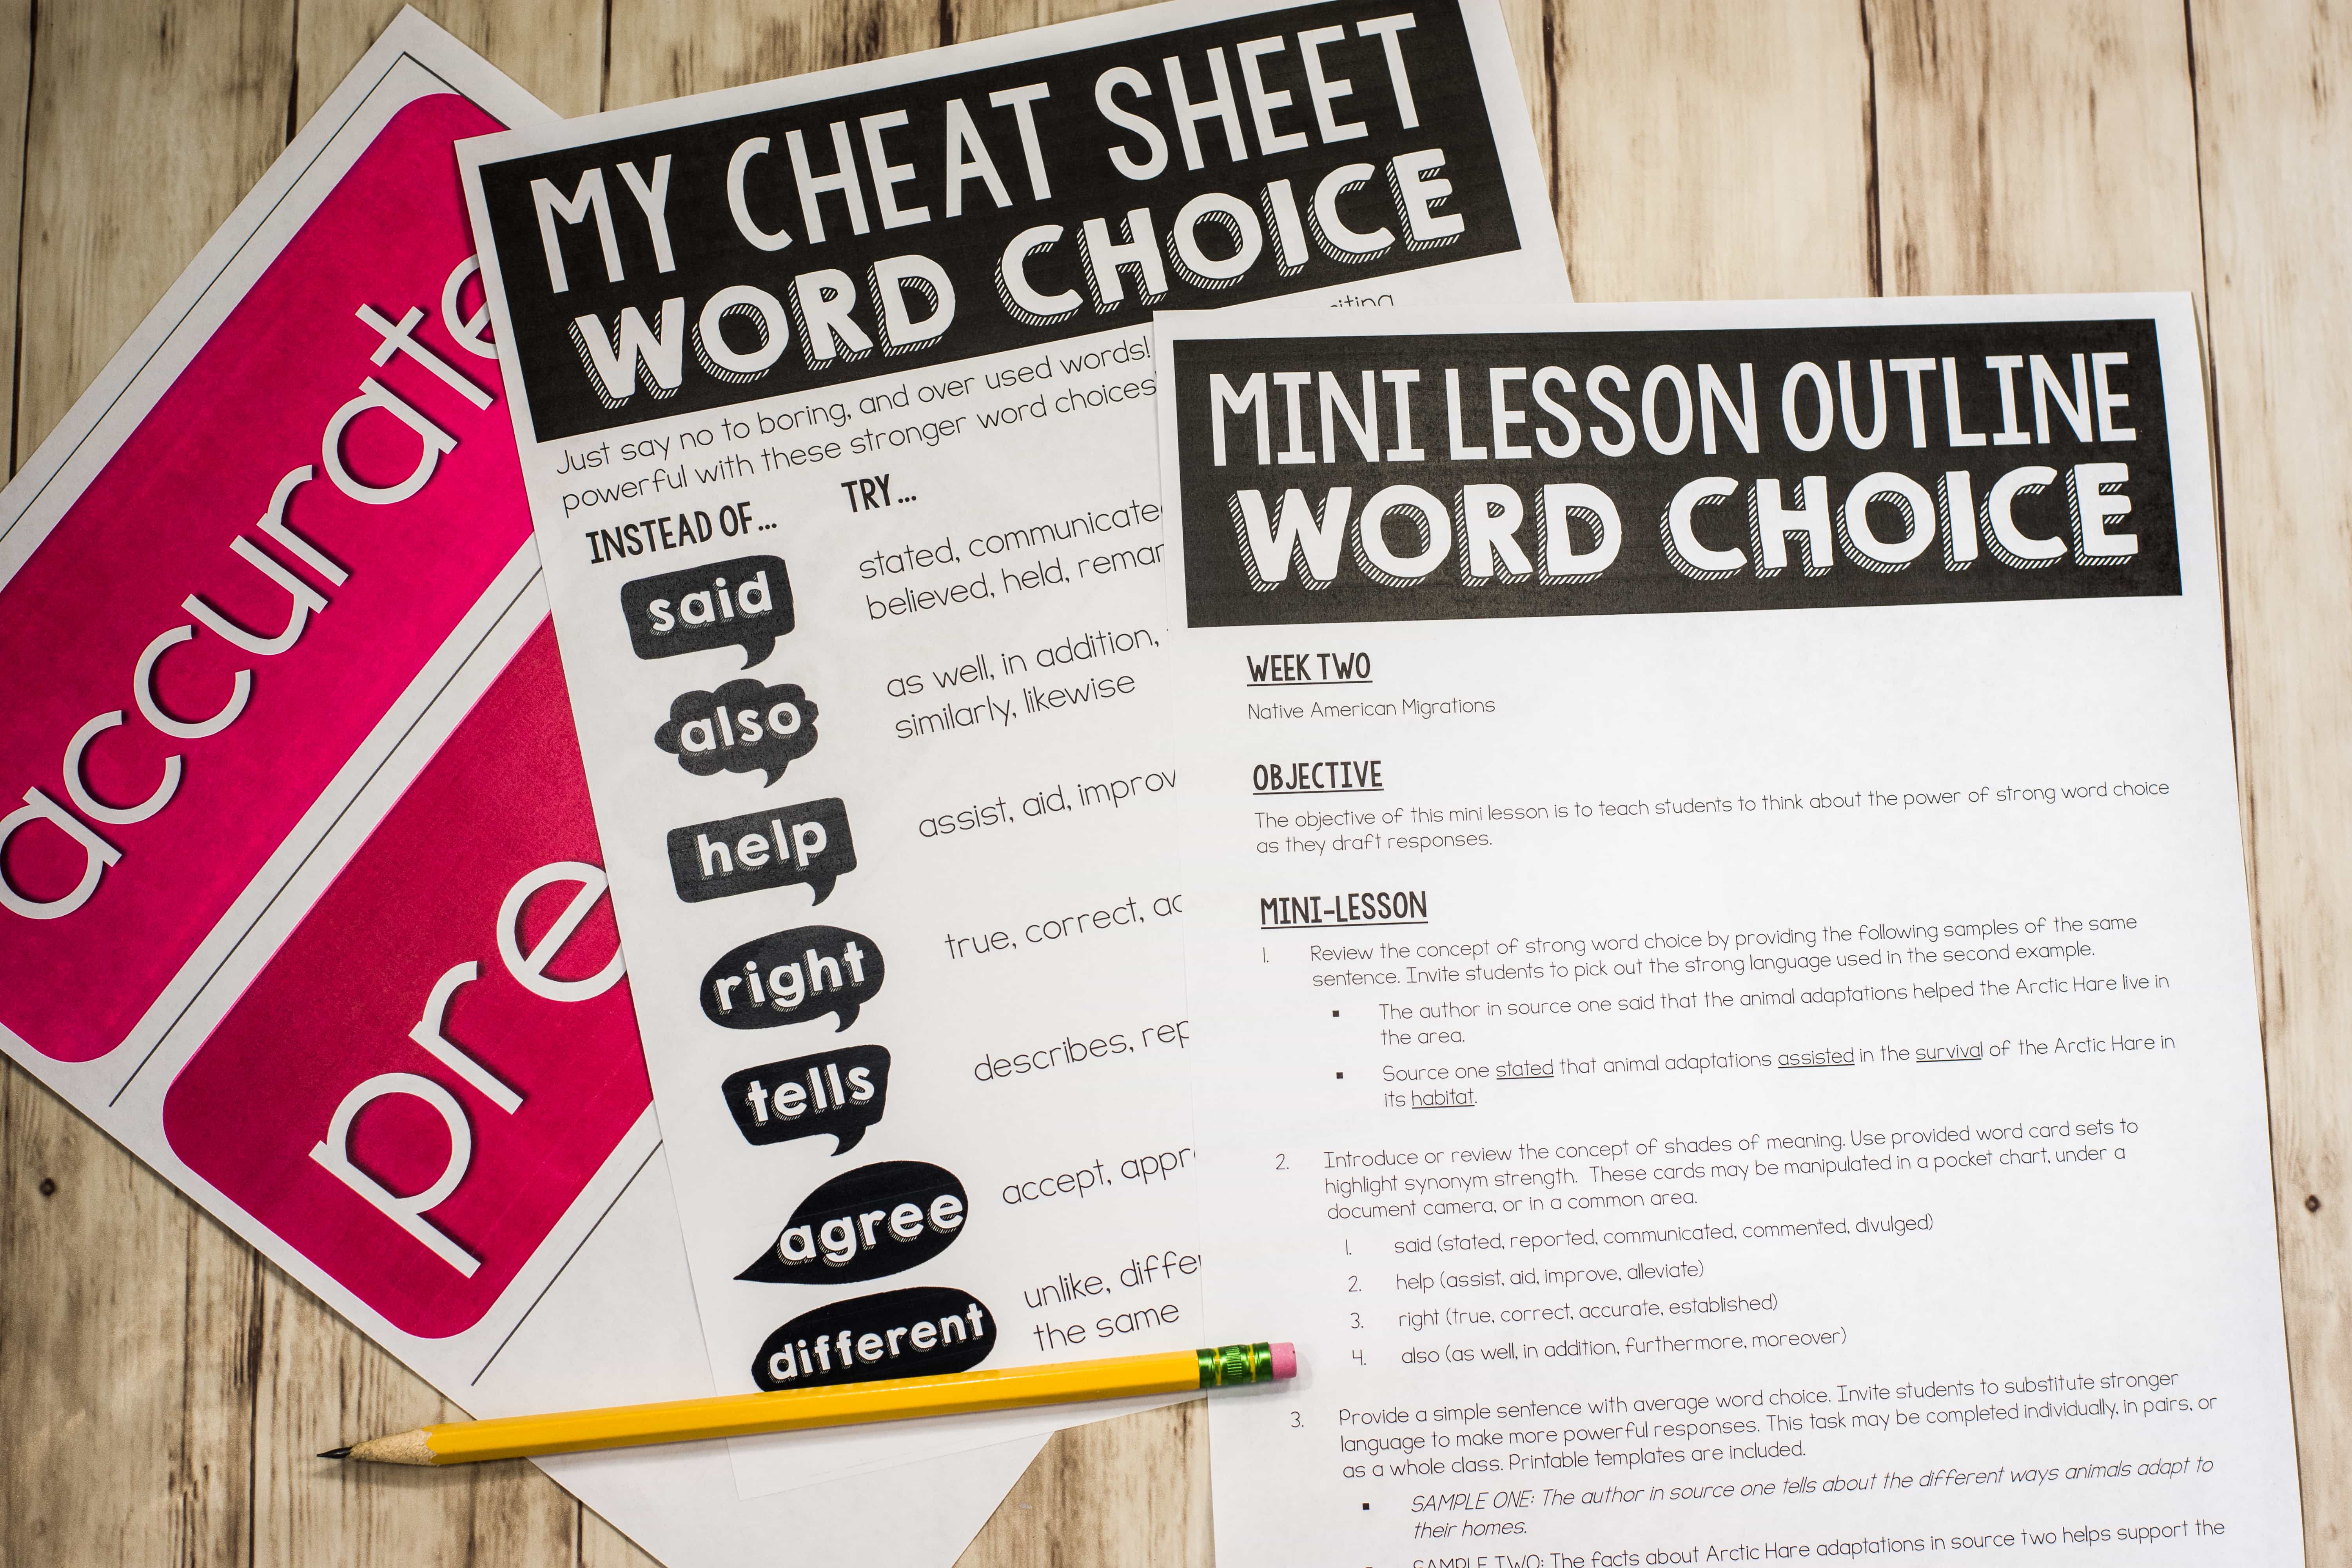 accurate
MY CHEAT SHEET
WORD CHOICE
Just say no to boring, and over used words!
powerful with these stronger word choices
INSTEAD OF...
TRY...
said
stated,
believed, held,
also
as well, in addition,
similarly, likewise
help
assist, aid,
right
true, correct,
tells
describes,
agree
accept,
different
unlike,
the same
MINI LESSON OUTLINE
WORD CHOICE
WEEK TWO
Native American Migrations
OBJECTIVE
The objective of this mini lesson is to teach students to think about the power of strong word choice
as they draft responses.
MINI-LESSON
1. Review the concept of strong word choice by providing the following samples of the same
sentence. Invite students to pick out the strong language used in the second example.
▪ The author in source one said that the animal adaptations helped the Arctic Hare live in
the area.
▪ Source one stated that animal adaptations assisted in the survival of the Arctic Hare in
its habitat.
2. Introduce or review the concept of shades of meaning. Use provided word card sets to
highlight synonym strength. These cards may be manipulated in a pocket chart, under a
document camera, or in a common area.
1. said (stated, reported, communicated, commented, divulged)
2. help (assist, aid, improve, alleviate)
3. right (true, correct, accurate, established)
4. also (as well, in addition, furthermore, moreover)
3. Provide a simple sentence with average word choice. Invite students to substitute stronger
language to make more powerful responses. This task may be completed individually, in pairs, or
as a whole class. Printable templates are included.
▪ SAMPLE ONE: The author in source one tells about the different ways animals adapt to
their homes.
SAMPLE TWO: The facts about Arctic Hare adaptations in source two helps support the